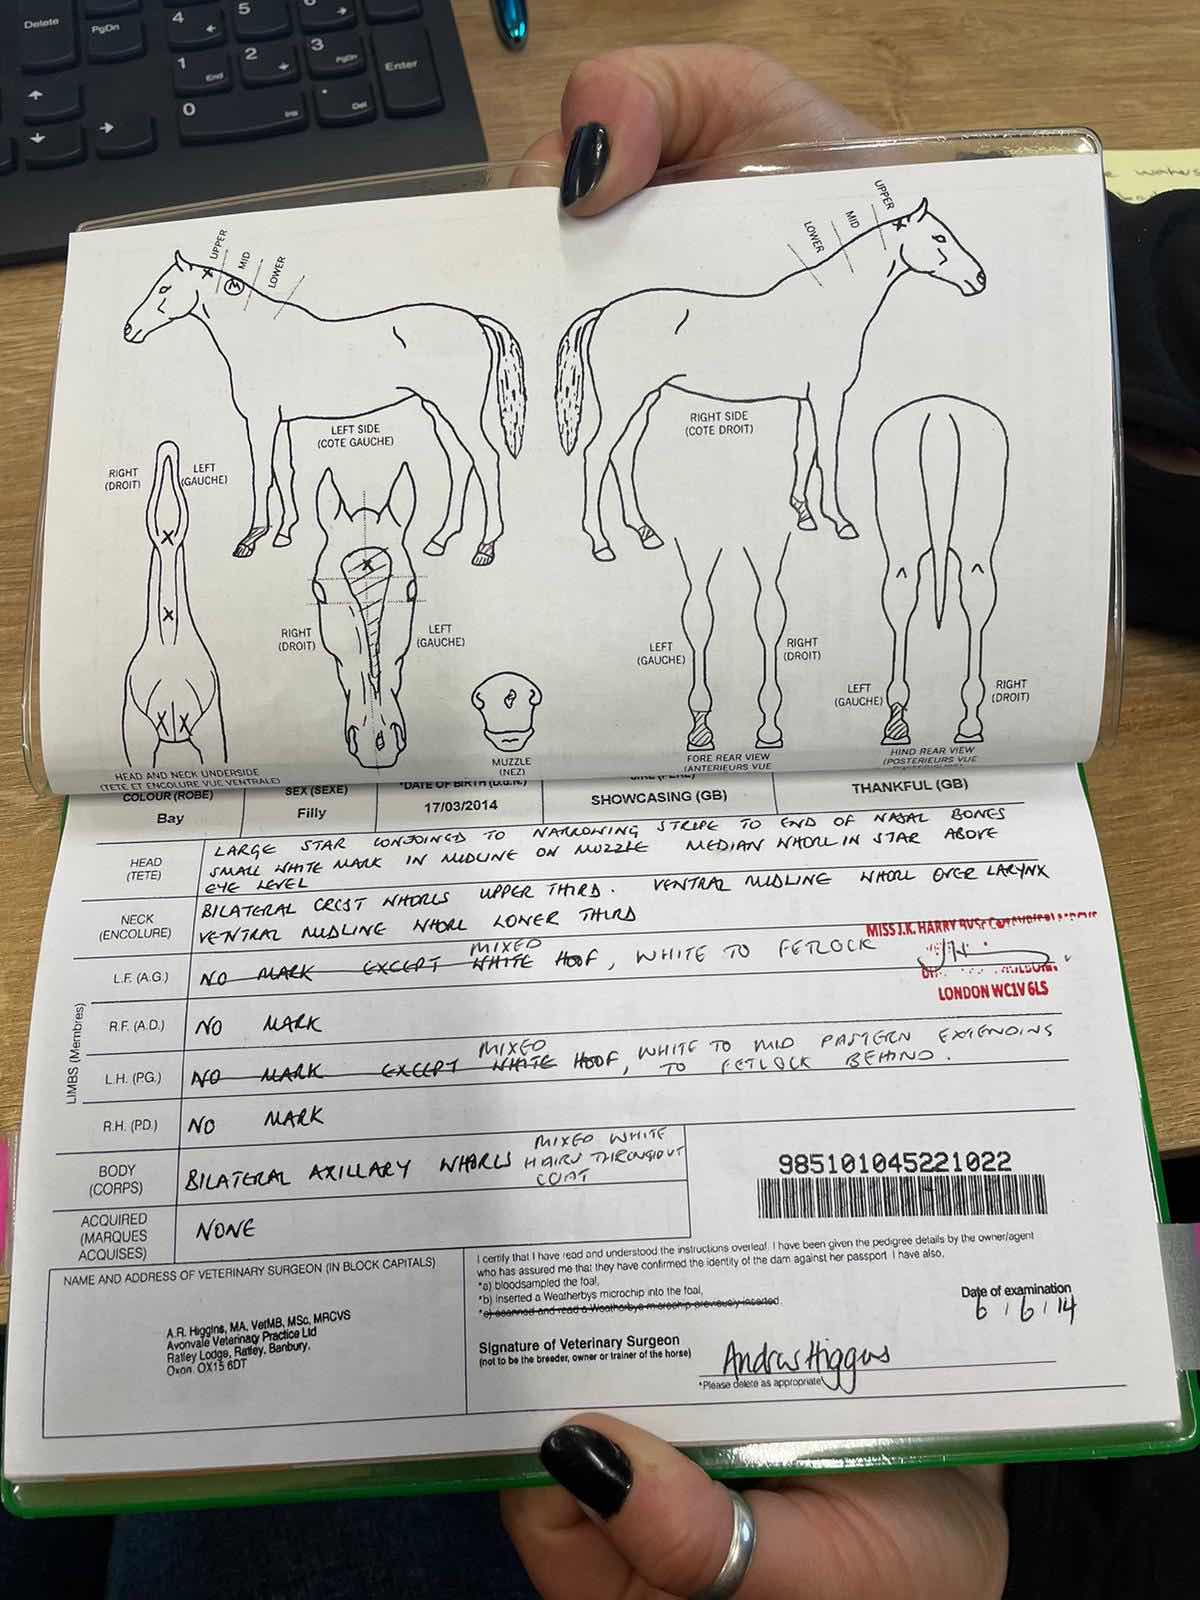 Delete
PgDn
4
5
6
1
End
2
3
PgDn
Enter
0
Ins
.
Del
UPPER
MID
LOWER
LOWER
MID
UPPER
M
LEFT SIDE
(COTE GAUCHE)
RIGHT SIDE
(COTE DROIT)
RIGHT
(DROIT)
LEFT
(GAUCHE)
RIGHT
(DROIT)
LEFT
(GAUCHE)
LEFT
(GAUCHE)
RIGHT
(DROIT)
LEFT
(GAUCHE)
RIGHT
(DROIT)
HEAD AND NECK UNDERSIDE
(TETE ET ENCOLURE VUE VENTRALE)
MUZZLE
(NEZ)
FORE REAR VIEW
(ANTERIEURS VUE
HIND REAR VIEW
(POSTERIEURS VUE
COLOUR (ROBE)
Bay
SEX (SEXE)
Filly
*DATE OF BIRTH (D.d.N.)
17/03/2014
SHOWCASING (GB)
THANKFUL (GB)
HEAD
(TETE)
LARGE STAR CONJOINED TO NARROWING STRIPE TO END OF NASAL BONES
SMALL WHITE MARK IN MIDLINE ON MUZZLE MEDIAN WHORL IN STAR ABOVE
EYE LEVEL
NECK
(ENCOLURE)
BILATERAL CREST WHORLS UPPER THIRD. VENTRAL MIDLINE WHORL OVER LARYNX
VENTRAL MIDLINE WHORL LOWER THIRD
MISS J.K. HARRY
LONDON WC1V 6LS
LIMBS (Membres)
L.F. (A.G.)
MIXED
NO MARK EXCEPT WHITE HOOF, WHITE TO FETLOCK
R.F. (A.D.)
NO MARK
L.H. (P.G.)
MIXED
NO MARK EXCEPT WHITE HOOF, WHITE TO MID PASTERN EXTENDING
TO FETLOCK BEHIND.
R.H. (P.D.)
NO MARK
BODY
(CORPS)
BILATERAL AXILLARY WHORLS
MIXED WHITE
HAIRS THROUGHOUT
COAT
ACQUIRED
(MARQUES
ACQUISES)
NONE
985101045221022
NAME AND ADDRESS OF VETERINARY SURGEON (IN BLOCK CAPITALS)
A.R. Higgins, MA, VetMB, MSc, MRCVS
Avonvale Veterinary Practice Ltd
Ratley Lodge, Ratley, Banbury,
Oxon. OX15 6DT
I certify that I have read and understood the instructions overleaf. I have been given the pedigree details by the owner/agent
who has assured me that they have confirmed the identity of the dam against her passport. I have also,
*a) bloodsampled the foal,
*b) inserted a Weatherbys microchip into the foal,
*c) scanned and read a Weatherbys microchip previously inserted.
Date of examination
6 / 6 / 14
Signature of Veterinary Surgeon
(not to be the breeder, owner or trainer of the horse)
Andrew Higgins
*Please delete as appropriate